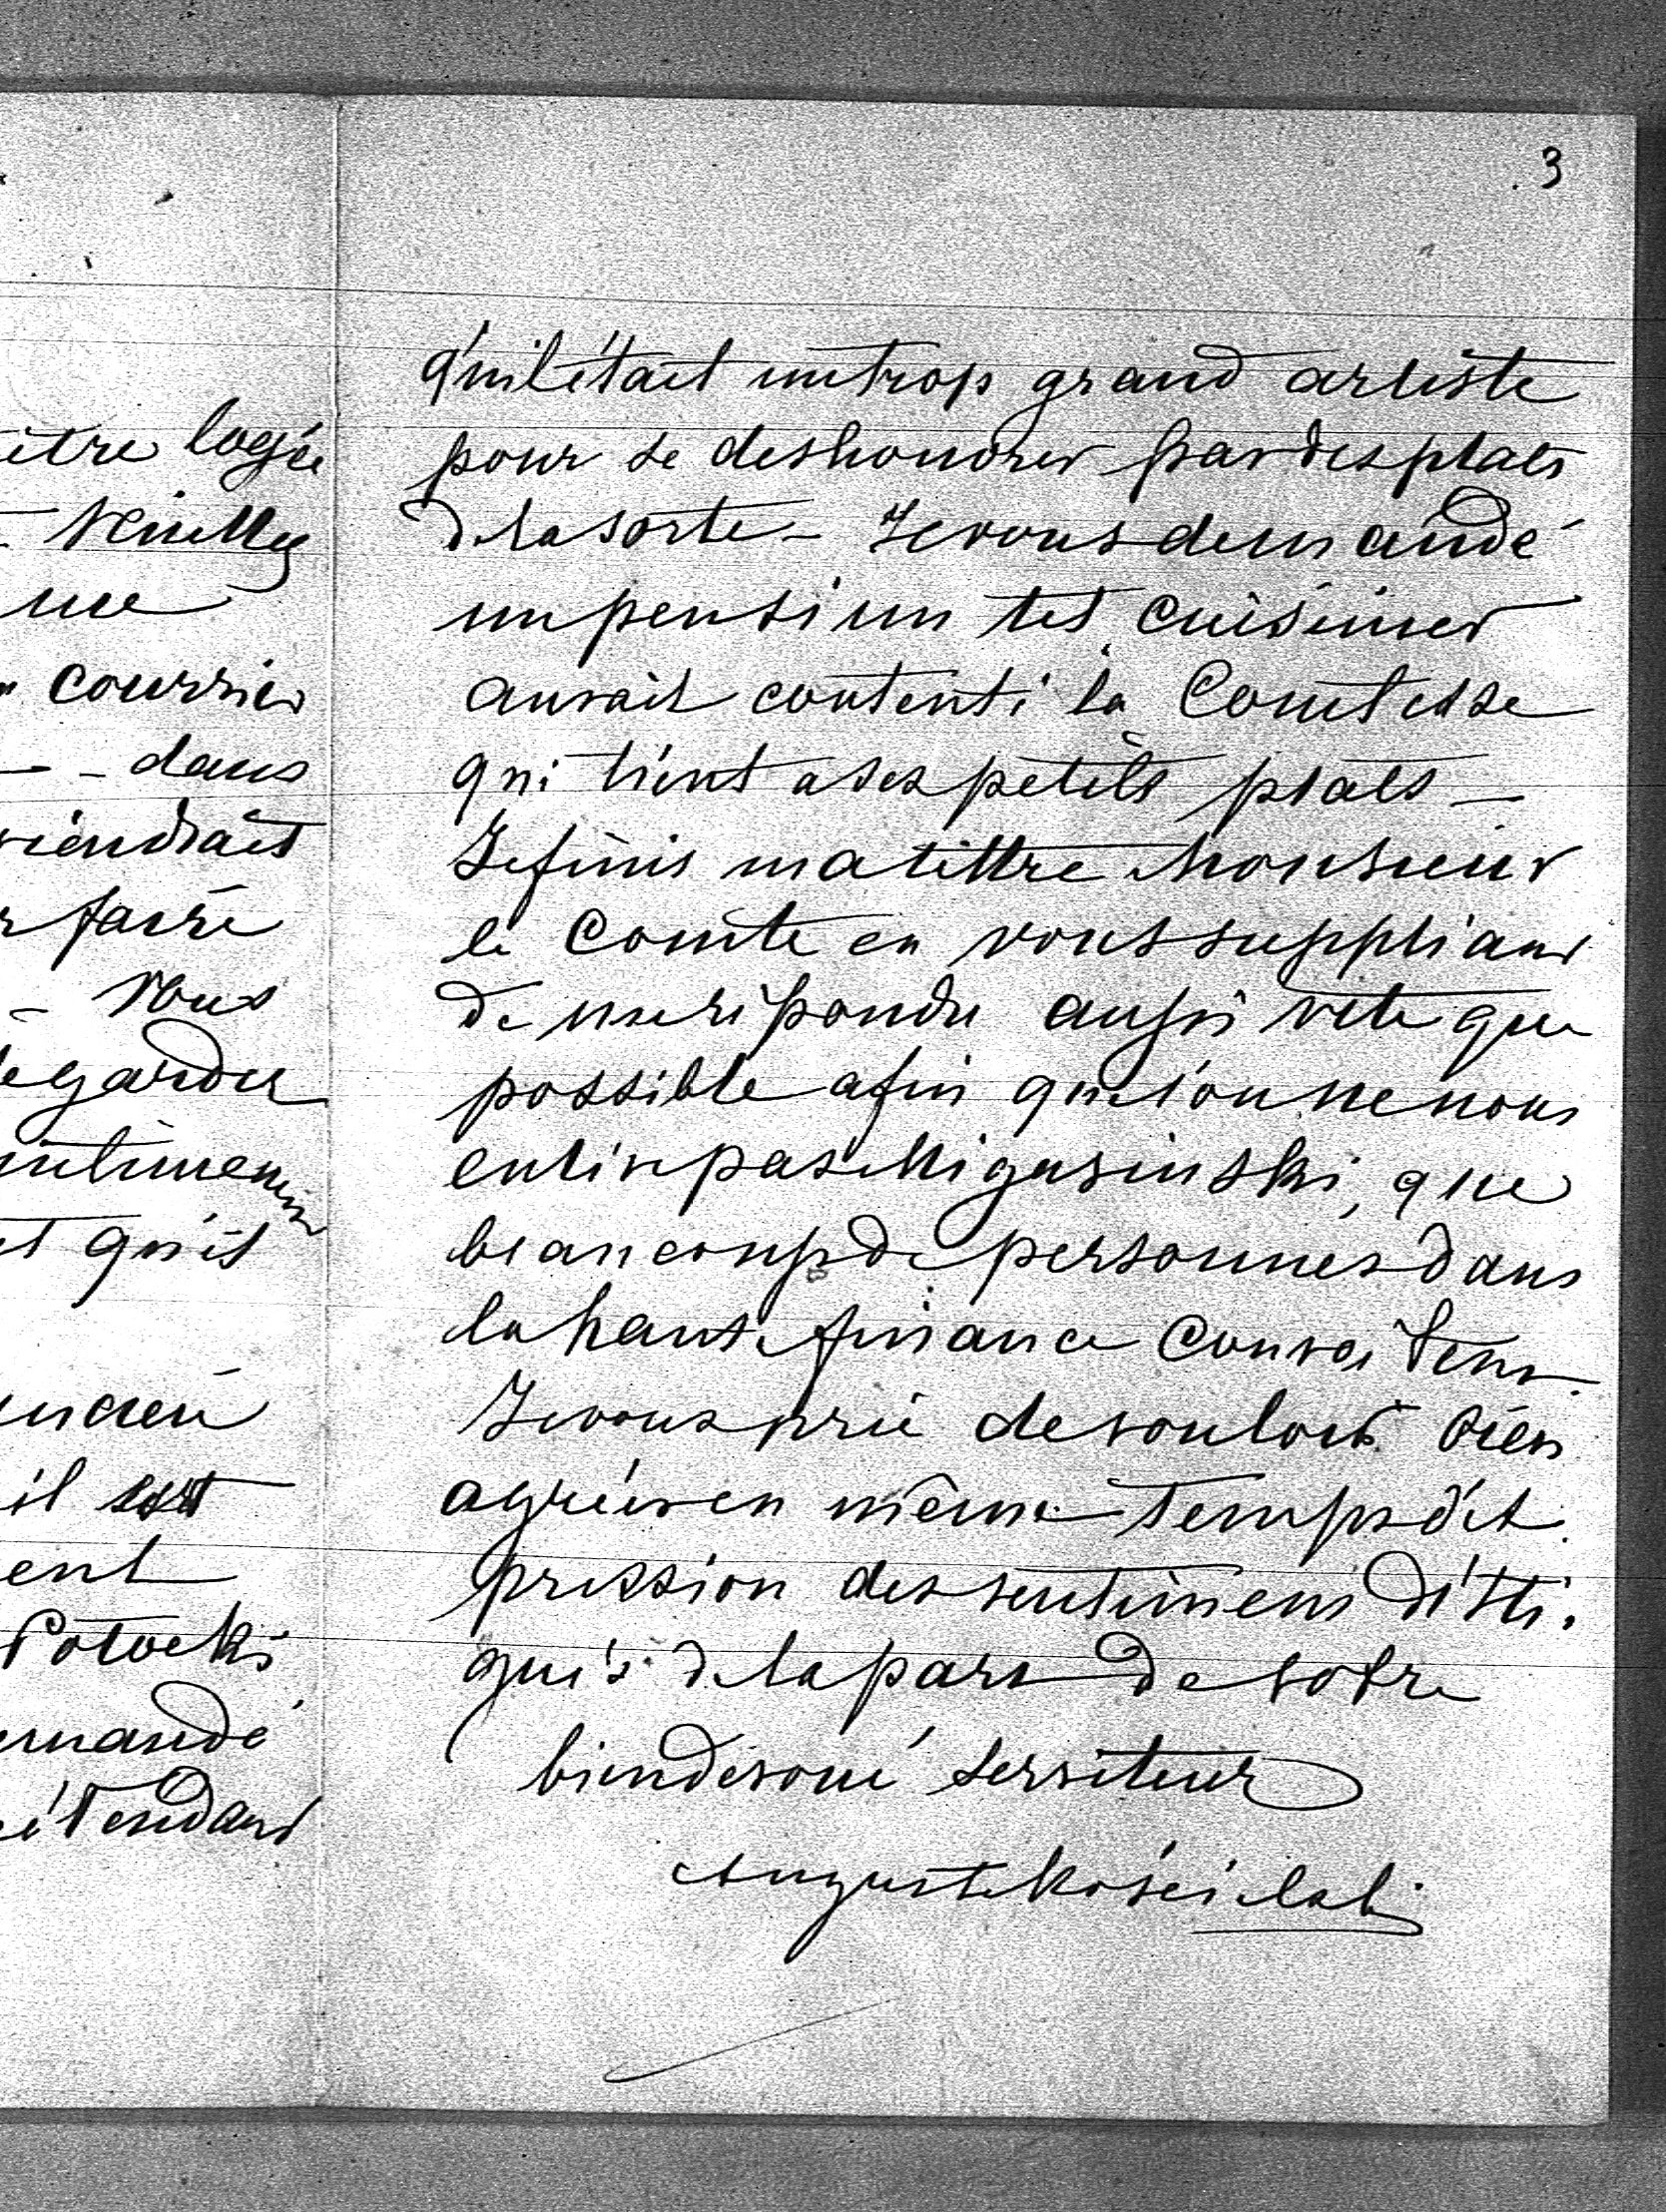 3
être logée
Neuilly
une
courrier
- dans
viendrait
faire
- Vous
garder
intimement
et qu'il
ancien
il est
ent
Potocki
emande
étendant
qu'il était un trop grand artiste
pour se deshonorer par des plats
d la sorte - Je vous demande
un peu si un tel cuisinier
aurait contenté la Comtesse
qui tient a ses petits plats -
Je finis ma lettre Monsieur
le Comte en vous suppliant
de me répondre aussi vite que
possible afin que l'on ne nous
enlève pas Migurinski, que
beaucoup de personnes dans
la haute finance convoitent.
Je vous prie de vouloir bien
agréer en même temps l'ex
pression des sentiments disti.
gués d la part de votre
bien dévoué serviteur
Auguste